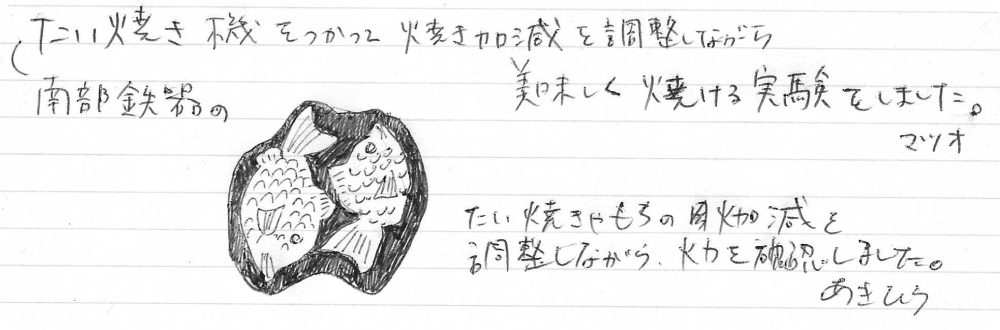 たい焼き機をつかって焼き加減を調整しながら
南部鉄器の
美味しく焼ける実験をしました。
マツオ
たい焼きやもちの
加減を
調整しながら、火力を確認しました。
あきひろ